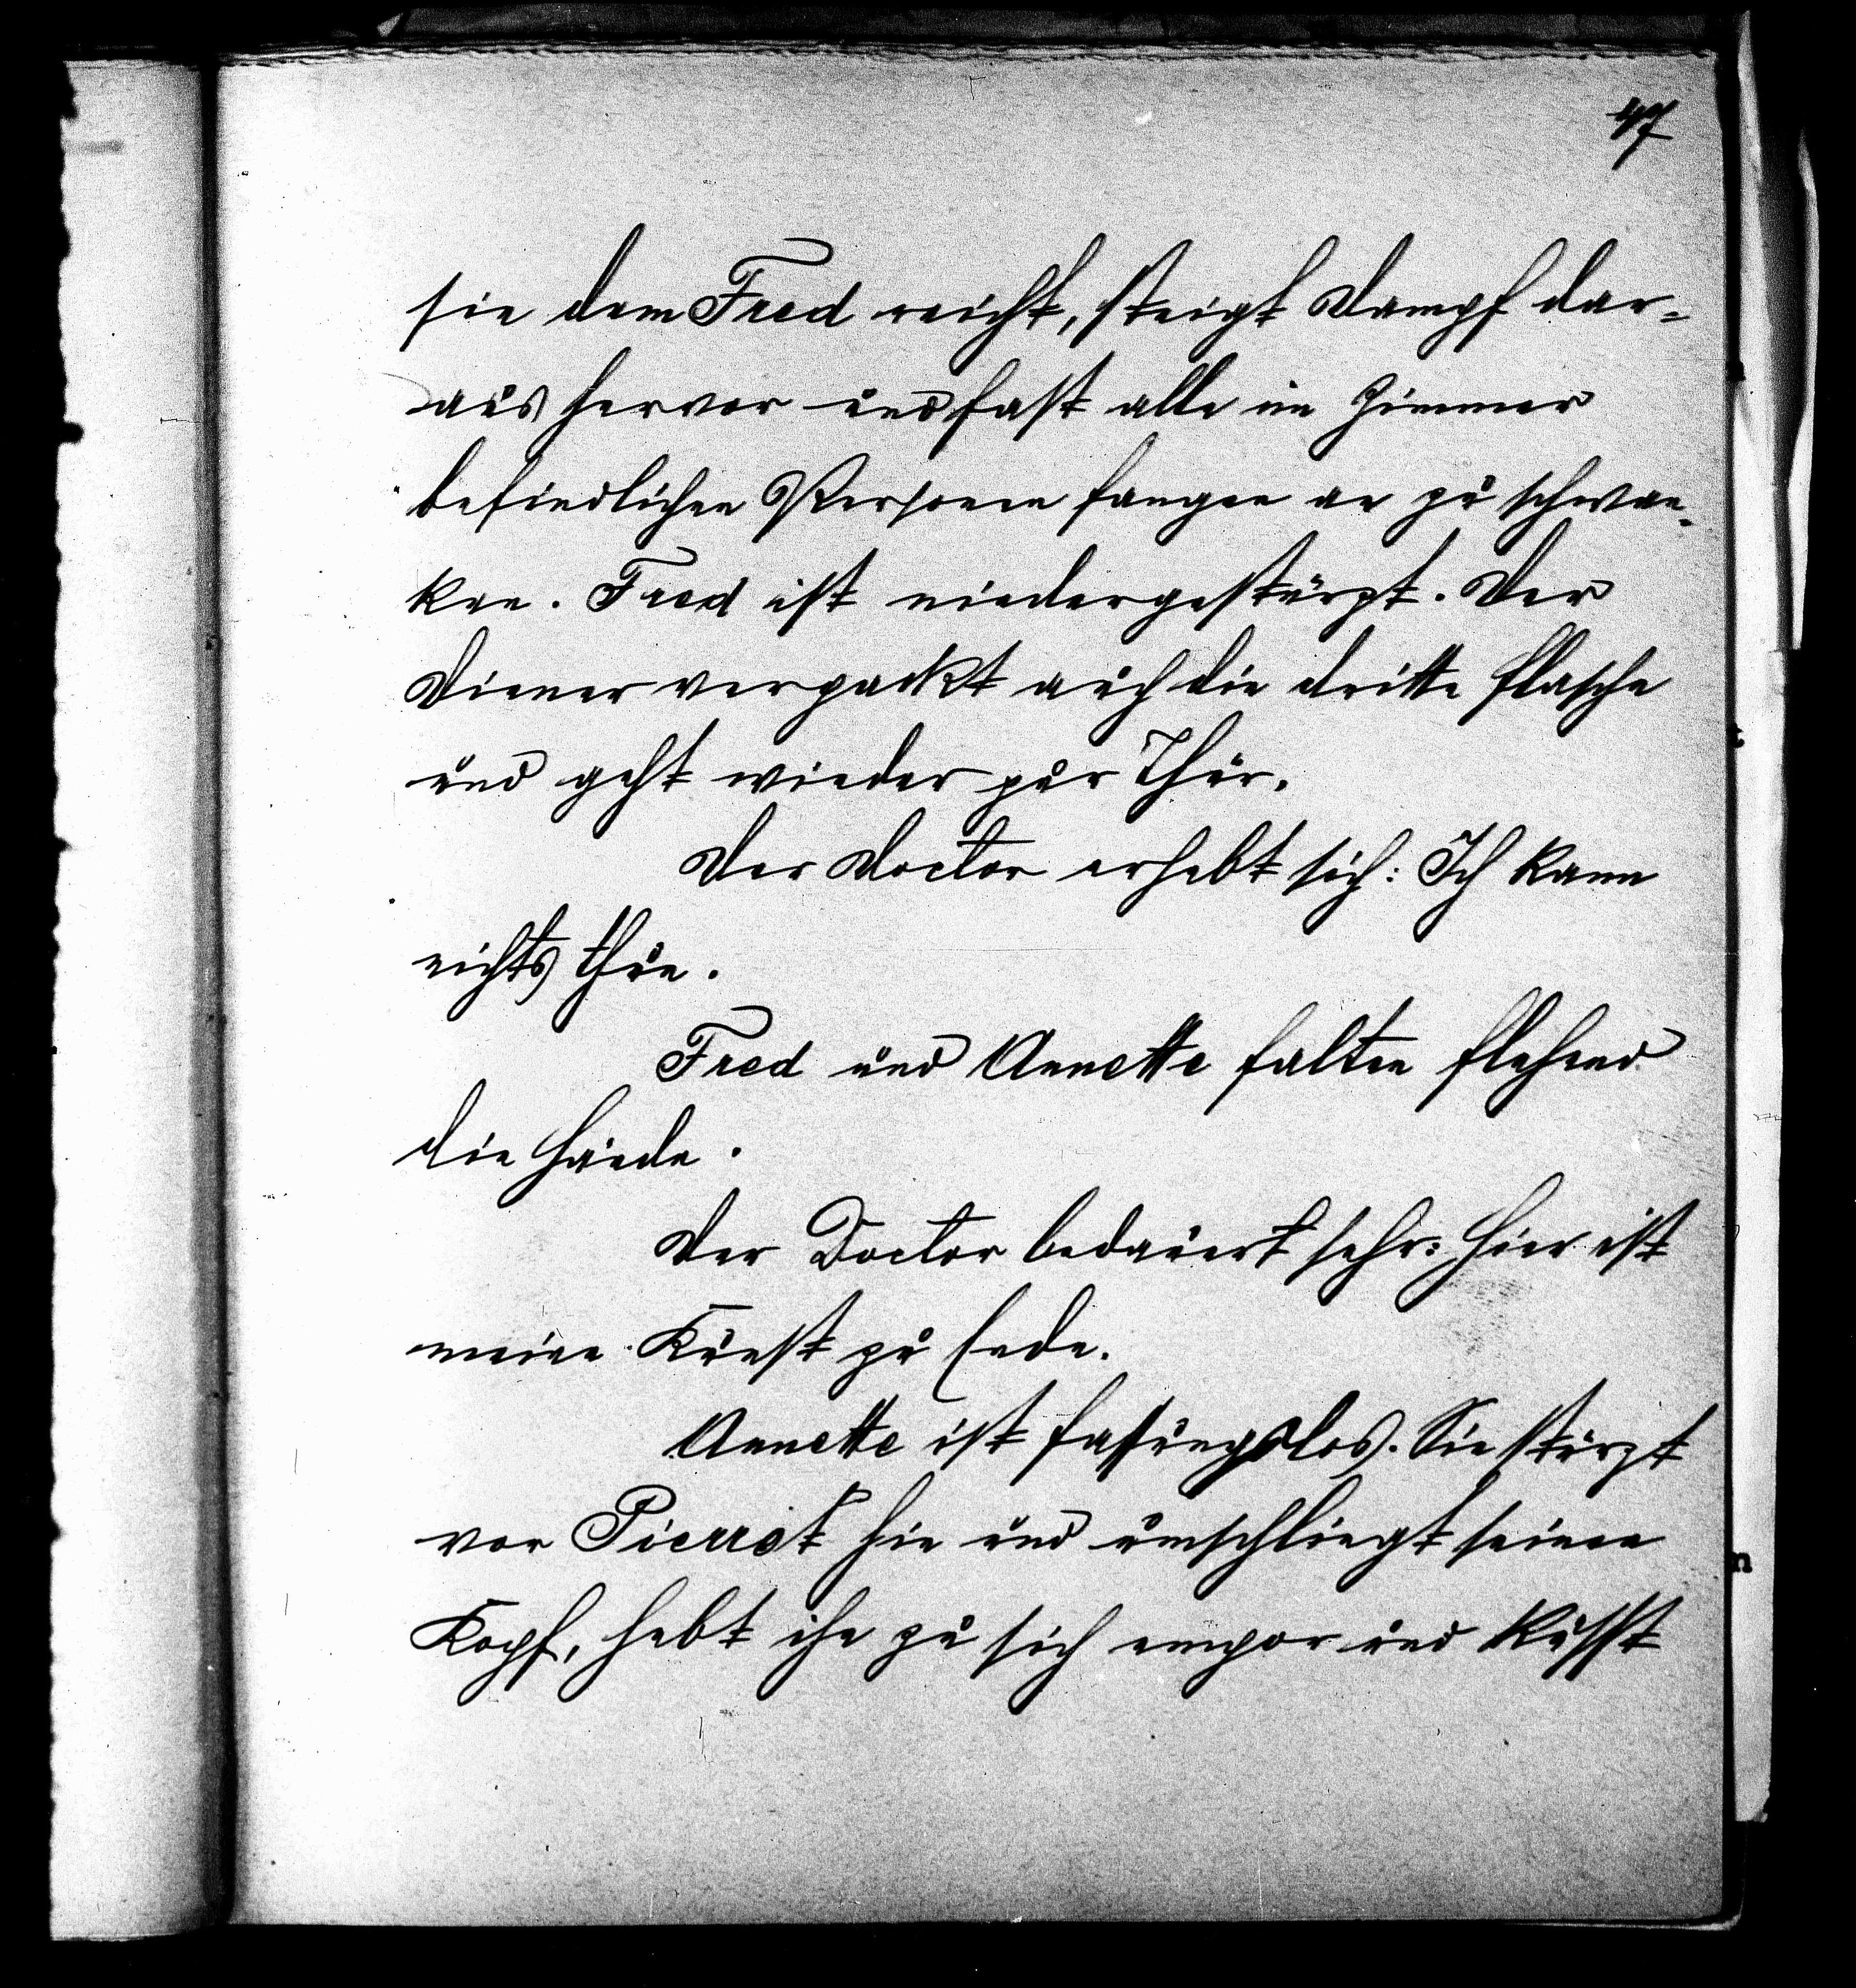 47
sie dem Fred reicht, steigt Dampf dar=
aus hervor und fast alle im Zimmer
befindlichen Personen fangen an zu schwan-
ken. Fred ist niedergestürzt. Der
Diener verpackt auch die dritte Flasche
und geht wieder zur Thür.
Der Doctor erhebt sich: Ich kann
nichts thun.
Fred und Annette falten flehend
die Hände.
Der Doctor bedauert sehr: Hier ist
meine Kunst zu Ende.
Annette ist fassungslos. Sie stürzt
vor Pierrot hin und umschlingt seinen
Kopf, hebt ihn zu sich empor und küsst